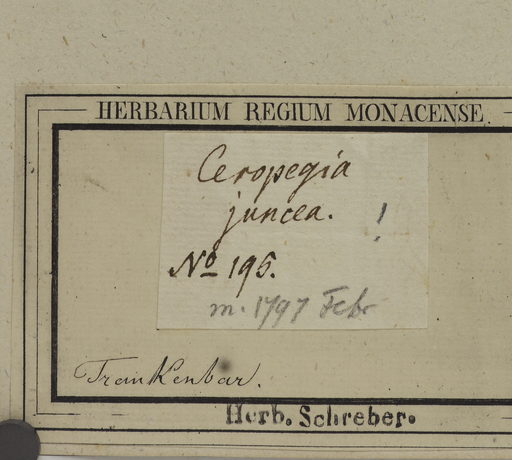 HERBARIUM REGIUM MONACENSE.
Ceropegia
juncea. !
No 195.
m. 1797 Febr
Trankenbar.
Herb. Schreber.